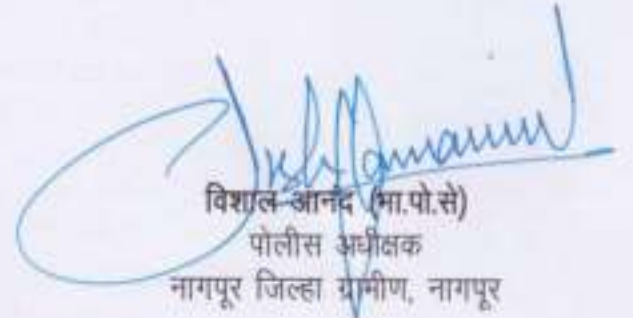 विशाल आनंद (भा.पो.से)
पोलीस अधीक्षक
नागपूर जिल्हा ग्रामीण, नागपूर